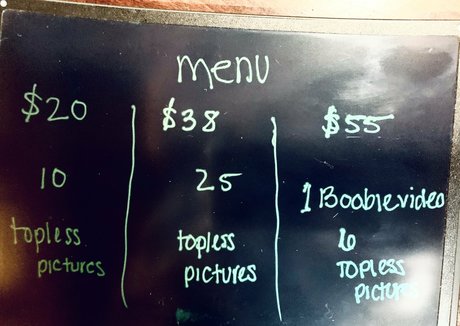 menu
$20
10
topless
pictures
$38
25
topless
pictures
$55
1 Boobievideo
6
TOPLESS
pictures